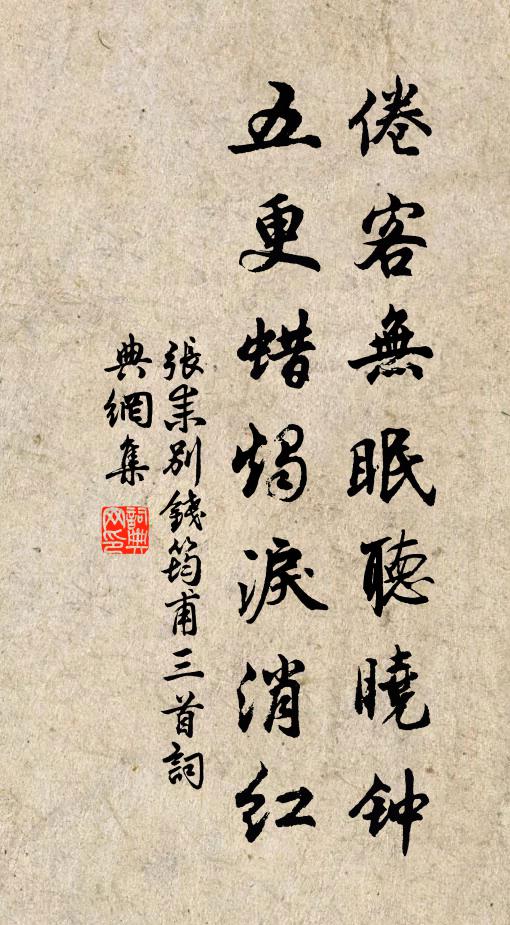 倦客無眠聽曉钟
五更蜡燭淚消红
張耒別錢筠甫三首詞
典網集
詞典网印